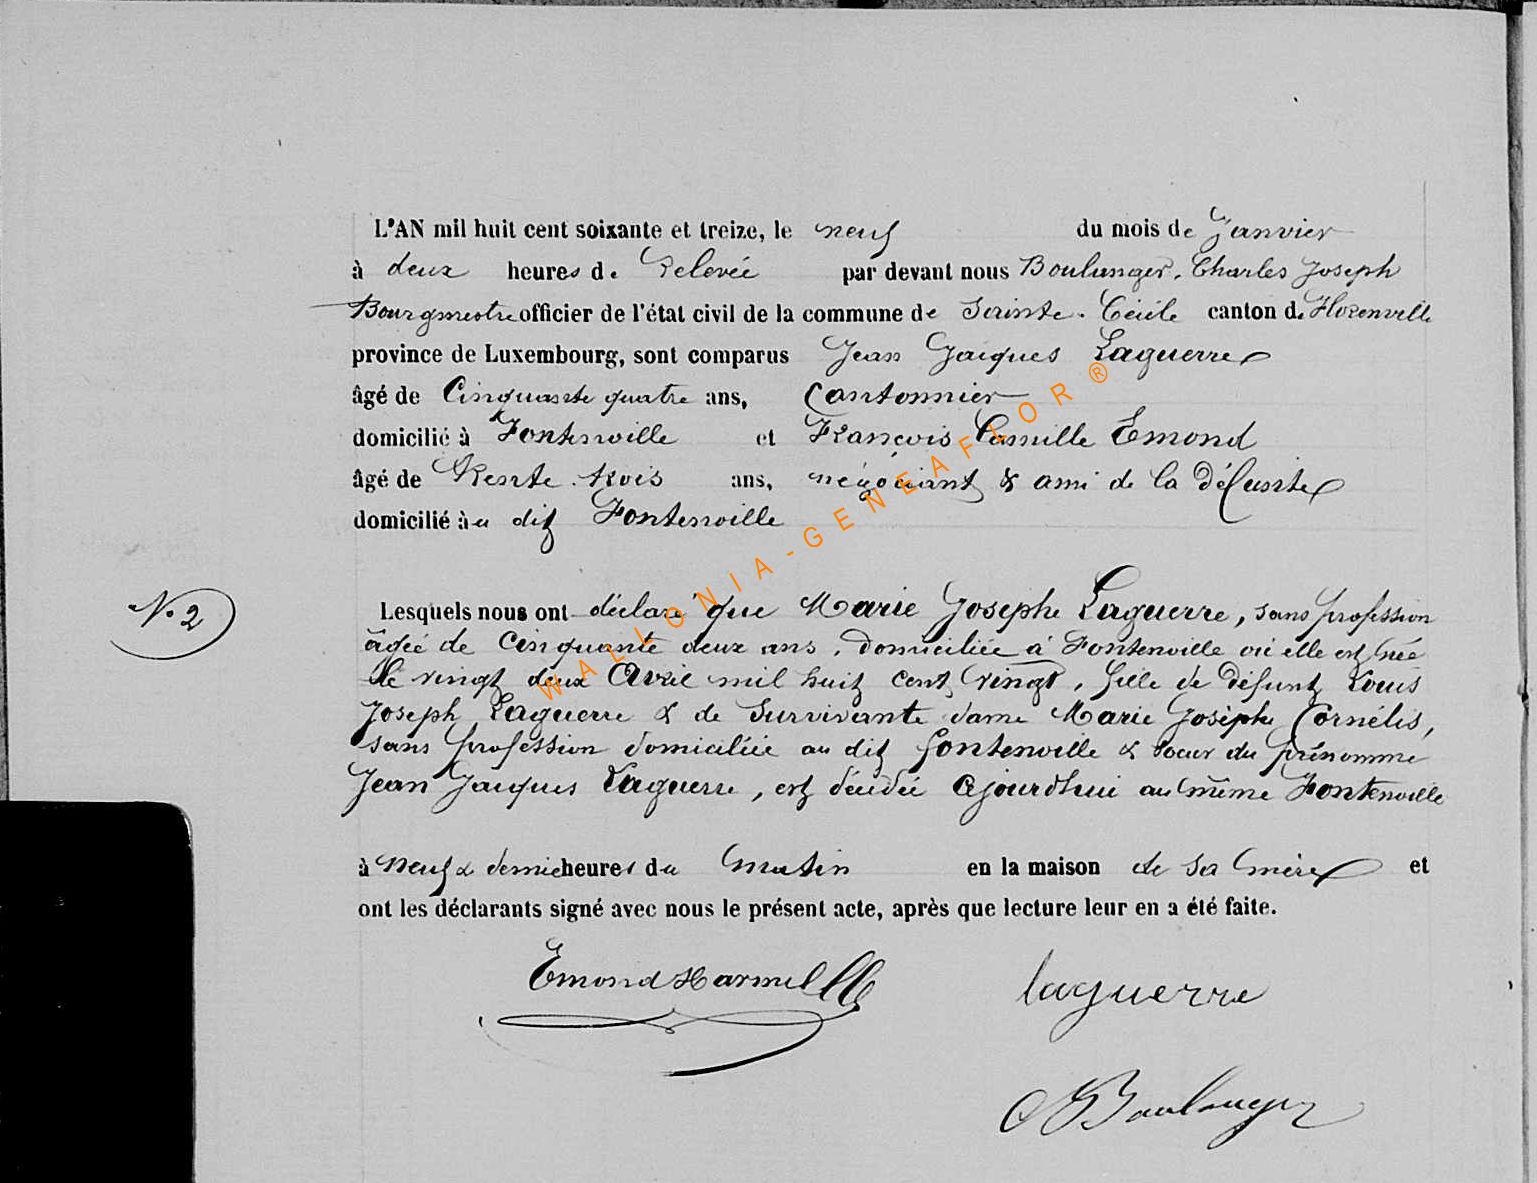 L'AN mil huit cent soixante et treize, le neuf du mois de Janvier
à deux heures de Relevée par devant nous Boulanger, Charles Joseph
Bourgmestre officier de l'état civil de la commune de Sainte-Cécile canton de Florenville
province de Luxembourg, sont comparus Jean Jacques Laguerre
âgé de Cinquante quatre ans, Cantonnier
domicilié à Fontenoille et François Camille Emond
âgé de Trente trois ans, négociant & ami de la défunte
domicilié au dit Fontenoille
N. 2
Lesquels nous ont déclaré que Marie Josephe Laguerre, sans profession
âgée de cinquante deux ans, domiciliée à Fontenoille où elle est née
le vingt deux Avril mil huit cent vingt, fille de défunt Louis
Joseph Laguerre & de Survivante dame Marie Josèphe Cornélis,
sans profession domiciliée au dit Fontenoille & soeur du prénommé
Jean Jacques Laguerre, est décédée Ajourdhui au même Fontenoille
à neuf & demie heures du matin en la maison de sa mère et
ont les déclarants signé avec nous le présent acte, après que lecture leur en a été faite.
Emond Harmel
laguerre
Boulanger
WALLONIA-GENEAFLOR ®